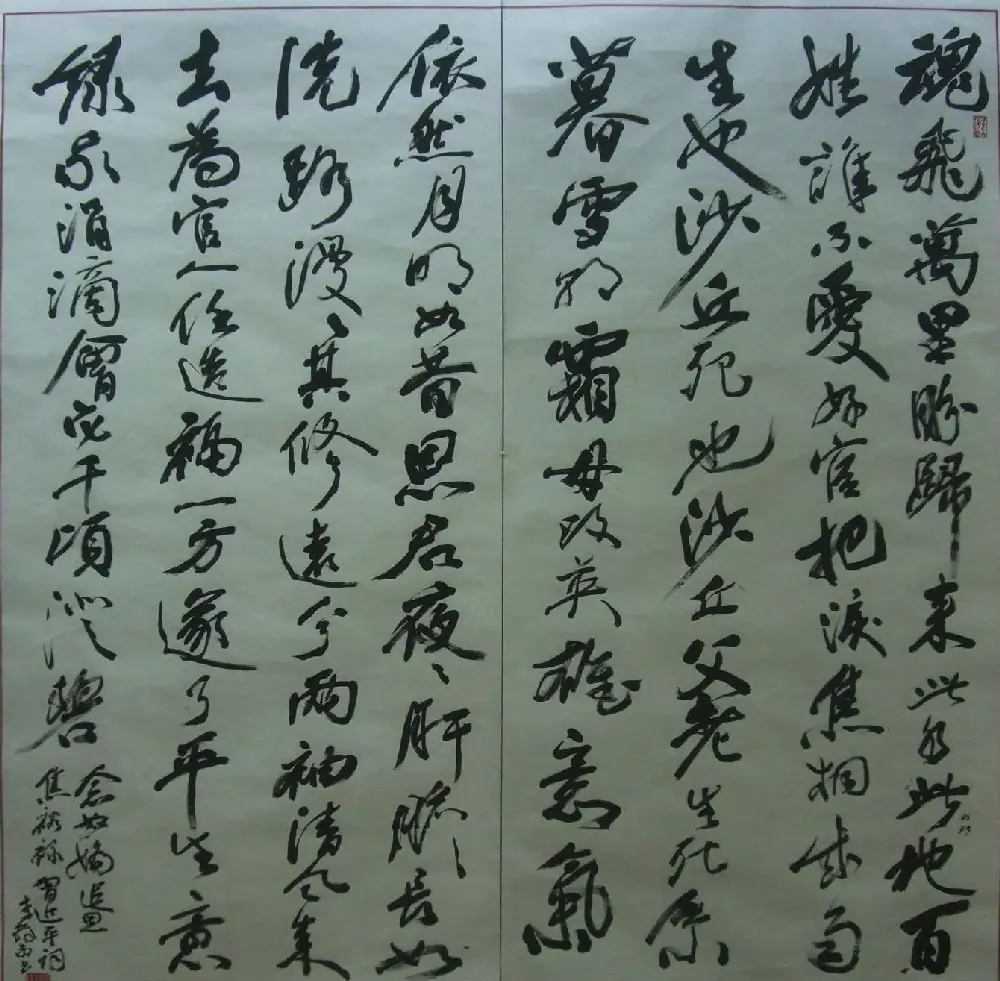 魂飛萬里盼歸来此水此地百
姓誰不愛好官把淚焦桐成雨
生也沙丘死也沙丘父老生死系
暮雪朝霜毋改英雄意氣
依然月明如昔思君夜々肝膽長如
洗路漫々其修遠兮兩袖清风来
去為官一任造福一方遂了平生意
綠我涓滴會它千頃澄碧
念奴嬌追思
焦裕祿習近平詞